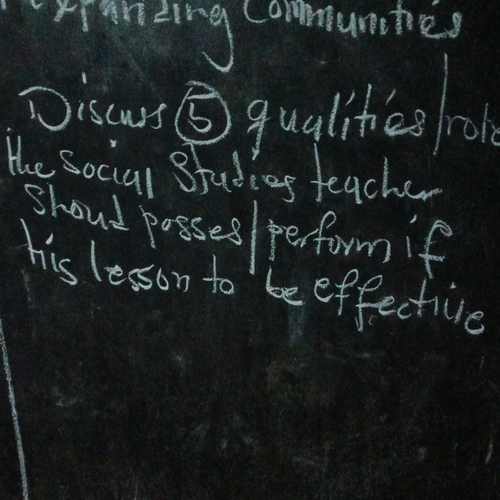 expanding Communities
Discuss 5 qualities/role
the Social Studies teacher
Shoud posses/perform if
his lesson to be effective